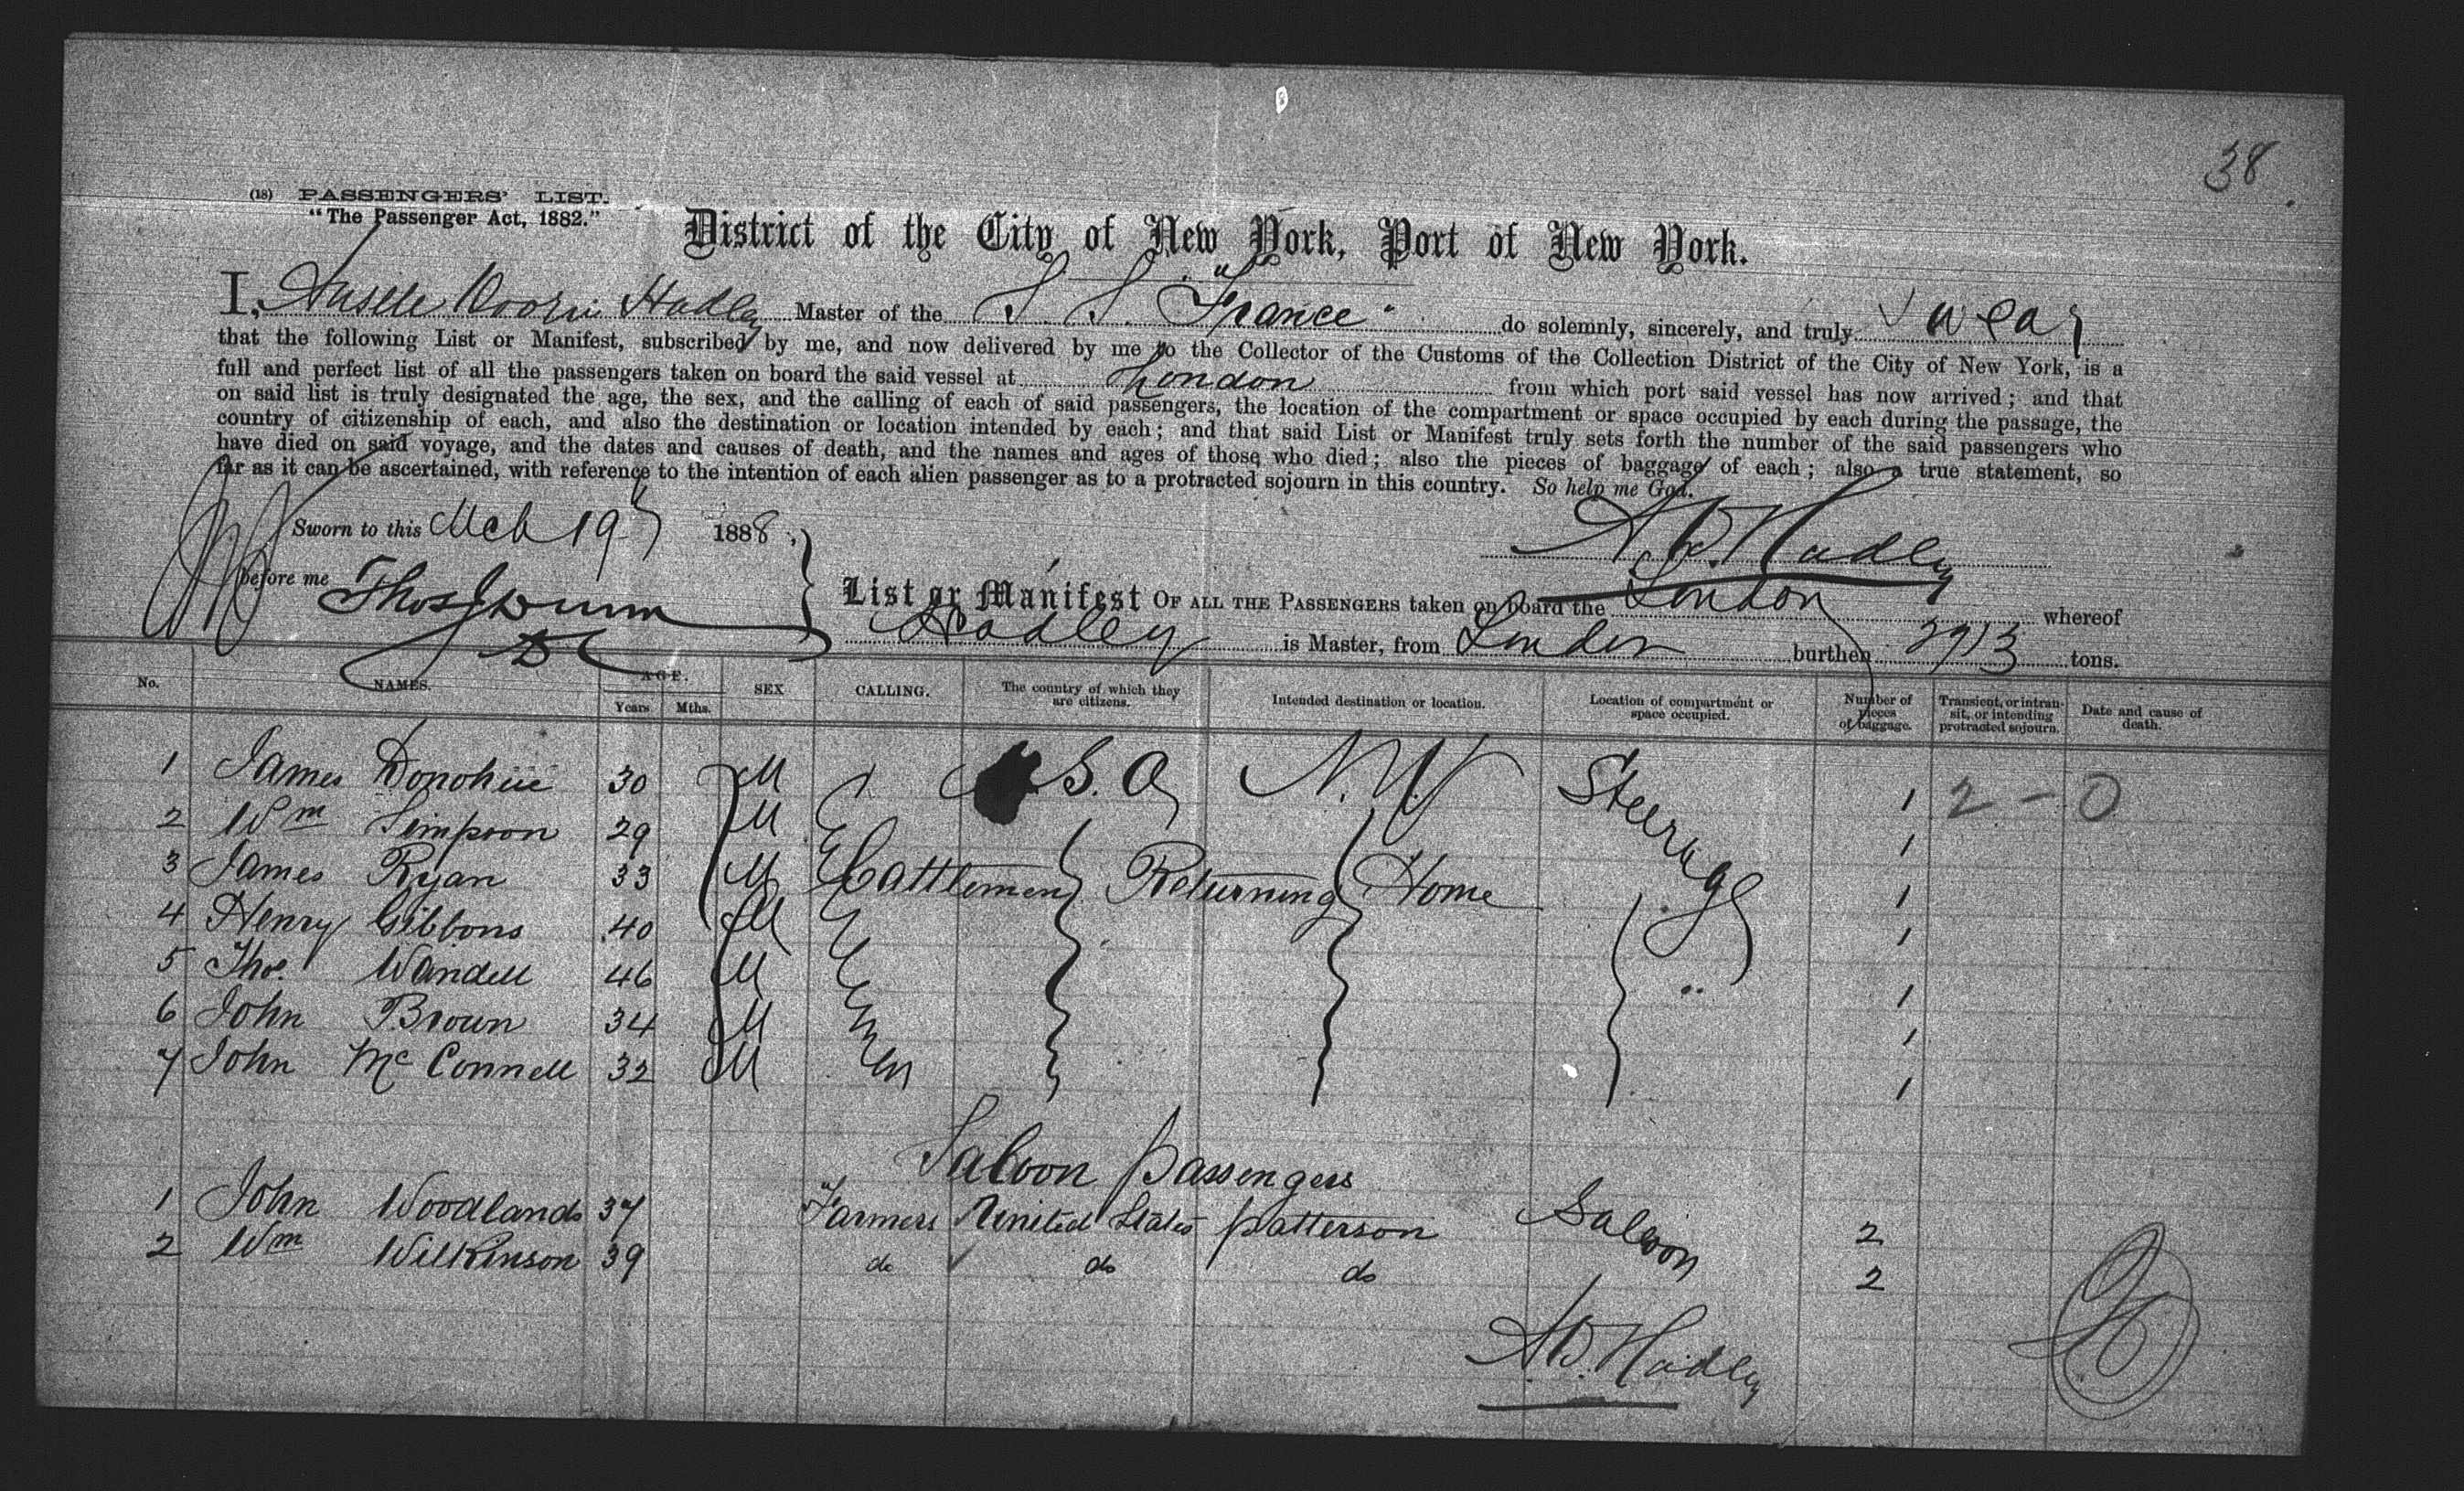 38
(18) PASSENGERS' LIST.
"The Passenger Act, 1882."
District of the City of New York, Port of New York.
I, Hadley Master of the S. S. "France" do solemnly, sincerely, and truly Swear
that the following List or Manifest, subscribed by me, and now delivered by me to the Collector of the Customs of the Collection District of the City of New York, is a
full and perfect list of all the passengers taken on board the said vessel at London from which port said vessel has now arrived; and that
on said list is truly designated the age, the sex, and the calling of each of said passengers, the location of the compartment or space occupied by each during the passage, the
country of citizenship of each, and also the destination or location intended by each; and that said List or Manifest truly sets forth the number of the said passengers who
have died on said voyage, and the dates and causes of death, and the names and ages of those who died; also the pieces of baggage of each; also a true statement, so
far as it can be ascertained, with reference to the intention of each alien passenger as to a protracted sojourn in this country. So help me God.
Sworn to this Mch 19 1888, A. D. Hadley
before me Thos J Dunn
DC
List or Manifest OF ALL THE PASSENGERS taken on board the London whereof
Hadley is Master, from London burthen tons.
No. NAMES. AGE. Years. Mths. SEX CALLING. The country of which they are citizens. Intended destination or location. Location of compartment or space occupied. Number of pieces of baggage. Transient, or in transit, or intending protracted sojourn. Date and cause of death.
1 James Donohue 30 M U.S.A. N.Y. Steerage 1 2 - 0
2 Wm Simpson 29 M 1
3 James Ryan 33 M Cattlemen Returning Home 1
4 Henry Gibbons 40 M 1
5 Thos. Wandell 46 M 1
6 John Brown 34 M 1
7 John McConnell 32 M 1
Saloon Passengers
1 John Woodlands 37 Farmers United States Patterson Saloon 2
2 Wm Wilkinson 39 do do do 2
A. D. Hadley